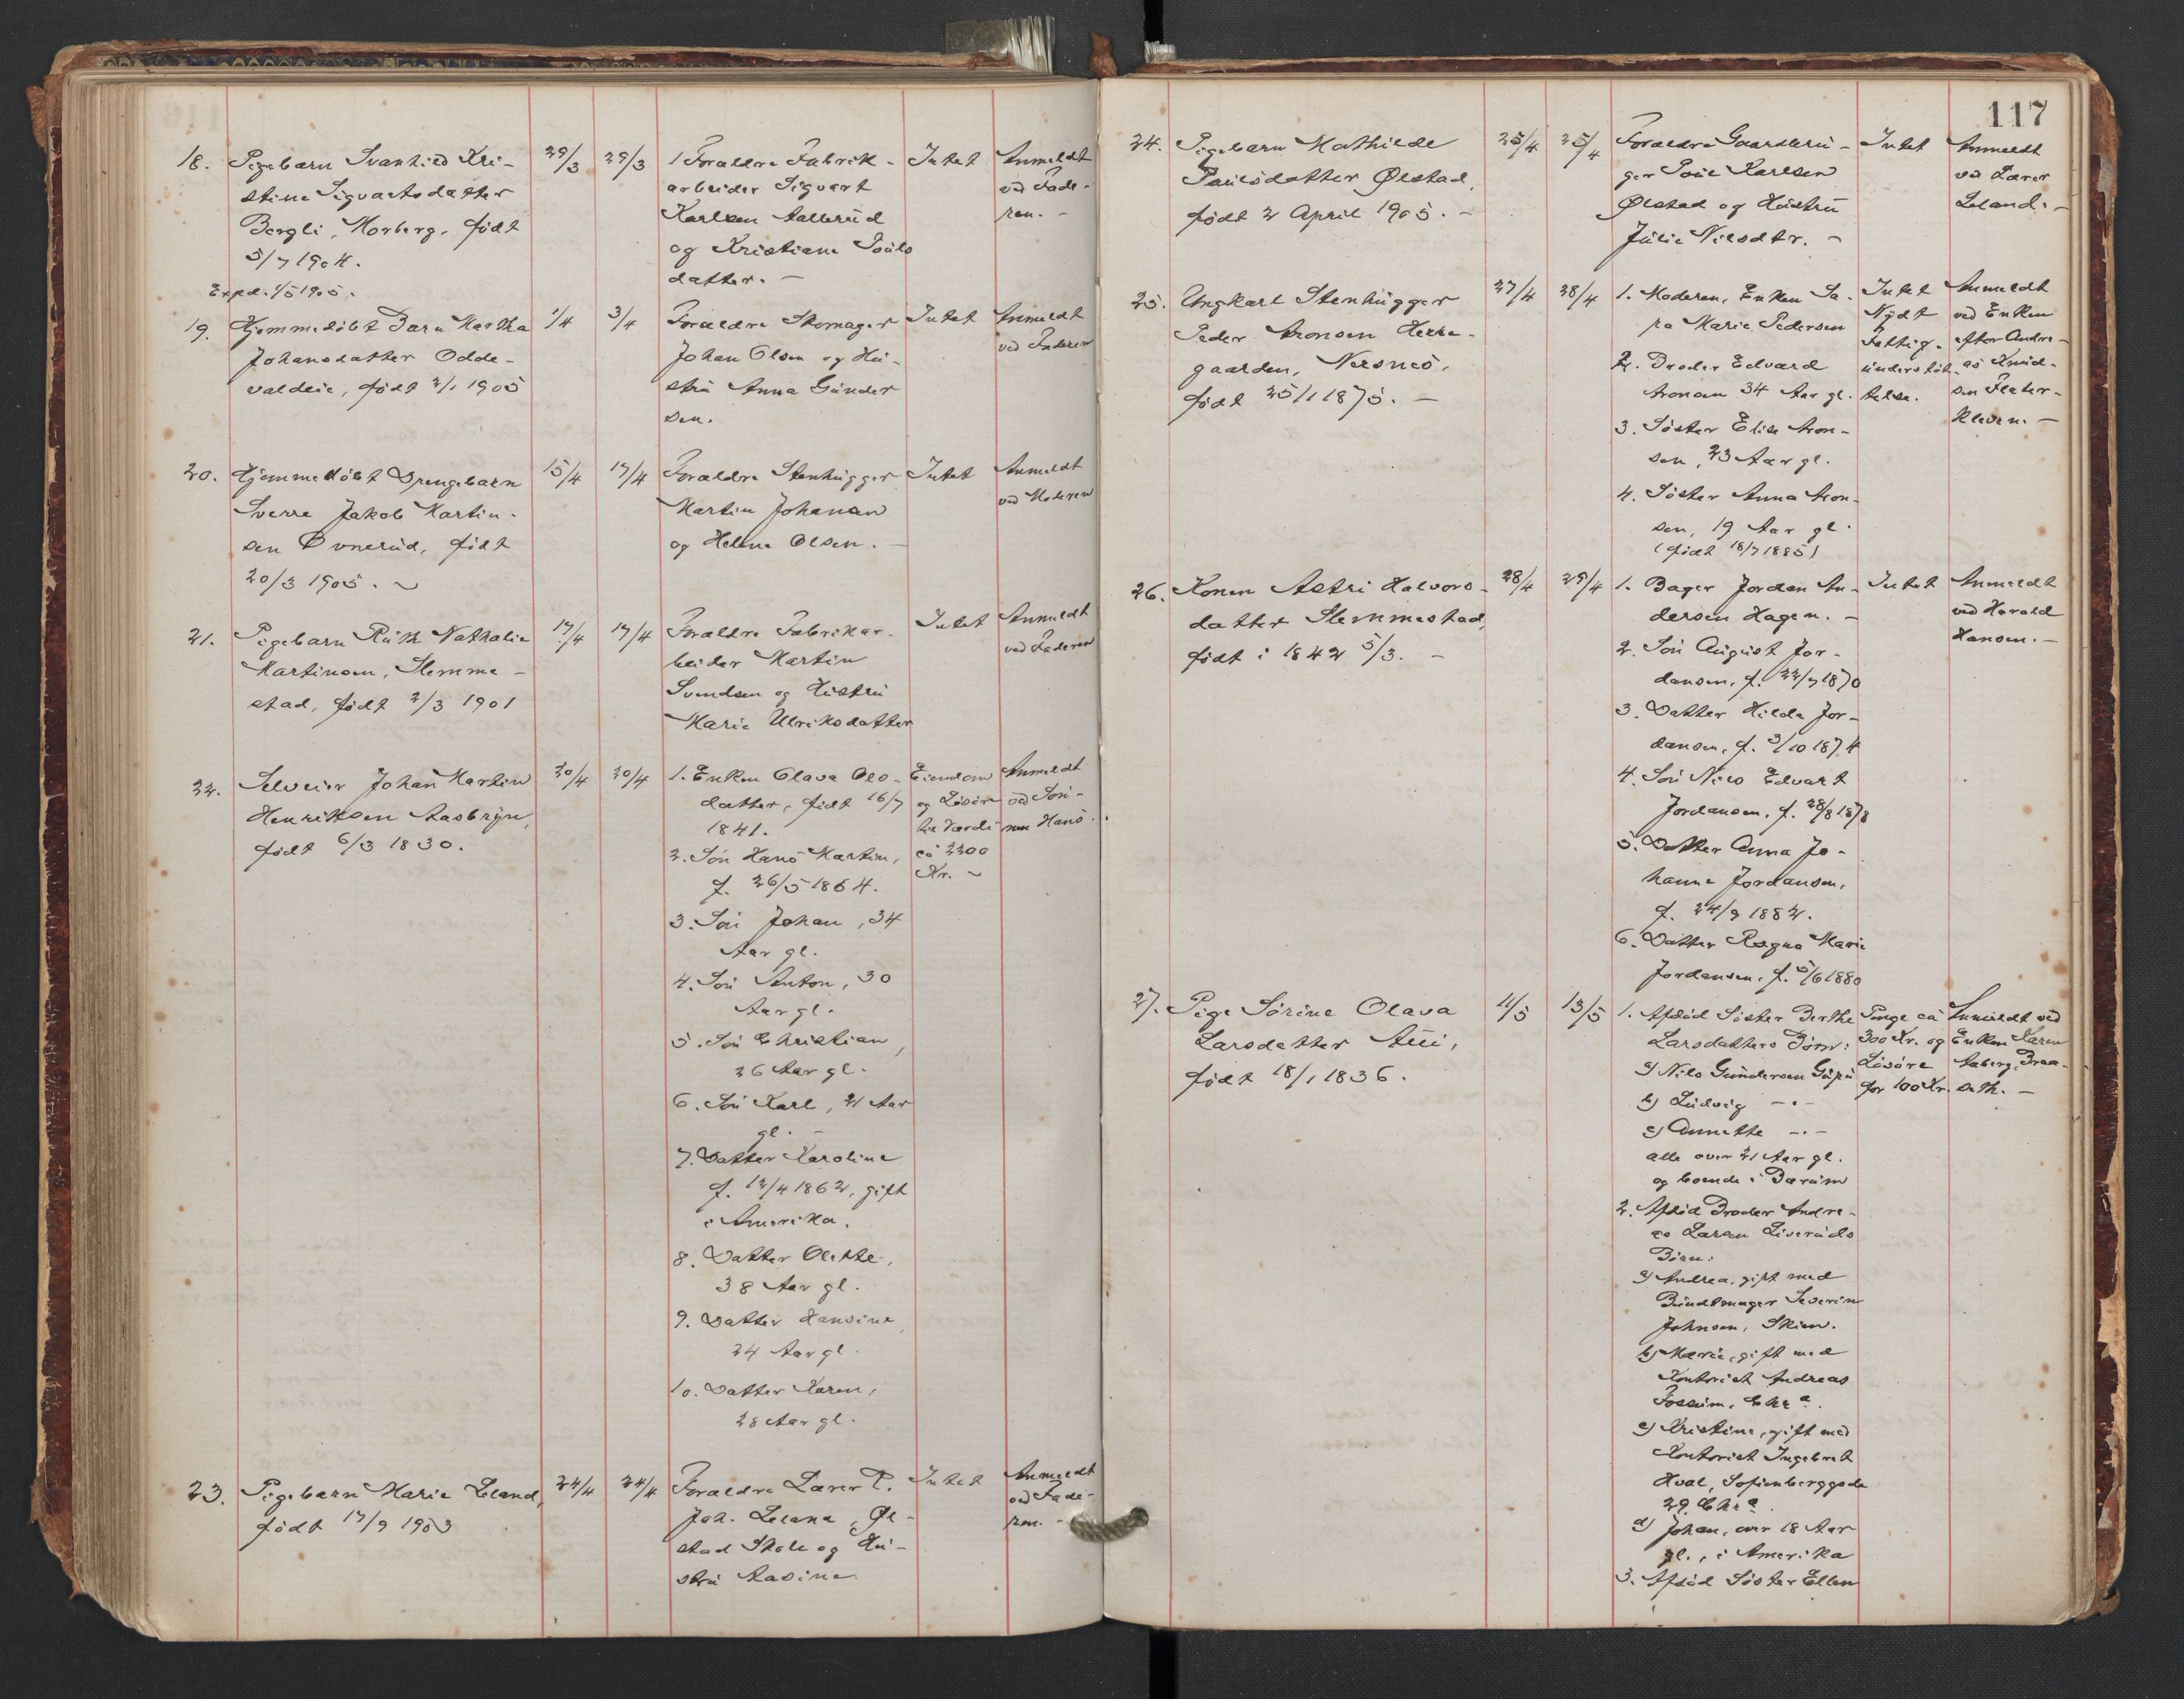 18. Pigebarn Svanhild Kri-
stine Sigvartsdatter
Bergli, Morberg, født
5/7 1904.
Expd. 1/5 1905.
29/3
29/3
1 Forældre Fabrik-
arbeider Sigvart
Karlsen Aallerud
og Kristiane Pouls
datter. —
Intet
Anmeldt
ved Fade-
ren. —
19. Hjemmedøbt Barn Martha
Johansdatter Odde-
valdeie, født 2/1 1905
1/4
3/4
Forældre Skomager
Johan Olsen og Hu-
stru Anna Gunder
sen.
Intet
Anmeldt
ved Faderen
20. Hjemmedøbt Drengebarn
Sverre Jakob Martin-
sen Ovnerud, født
20/3 1905.
15/4
17/4
Forældre Stenhugger
Martin Johansen
og Helene Olsen. —
Intet
Anmeldt
ved Moderen
21. Pigebarn Ruth Nathalie
Martinsen, Slemme-
stad, født 2/3 1901
17/4
17/4
Forældre Fabrikar-
beider Martin
Svendsen og Hustru
Marie Ulriksdatter
Intet
Anmeldt
ved Faderen
22. Selveier Johan Martin
Henriksen Aasbryn,
født 6/3 1830.
20/4
20/4
1. Enken Olava Ols-
datter, født 16/7
1841.
2. Søn Hans Martin,
f. 26/5 1864.
3. Søn Johan, 34
Aar gl.
4. Søn Anton, 30
Aar gl.
5. Søn Christian,
26 Aar gl.
6. Søn Karl, 21 Aar
gl. —
7. Datter Karoline
f. 12/4 1862, gift
i Amerika.
8. Datter Olette,
38 Aar gl.
9. Datter Hansine,
24 Aar gl.
10. Datter Karen,
28 Aar gl.
Eiendom
og Løsøre
til Værdi
ca 2200
Kr.
Anmeldt
ved Søn-
nen Hans.
23. Pigebarn Marie Leland,
født 17/9 1903
24/4
24/4
Forældre Lærer P.
Joh. Leland, Øl-
stad Skole og Hu-
stru Aasine
Intet
Anmeldt
ved Fade-
ren. —
117
24. Pigebarn Mathilde
Paulsdatter Ølstad,
født 2 April 1905. —
25/4
25/4
Forældre Gaardbru-
ger Poul Karlsen
Ølstad og Hustru
Julie Nilsdtr. —
Intet
Anmeldt
ved Lærer
Leland. —
25. Ungkarl Stenhugger
Peder Aronsen Herre-
gaarden, Nersnes,
født 25/1 1875. —
27/4
28/4
1. Moderen, Enken Sa-
ra Marie Pedersen
2. Broder Edvard
Aronsen 34 Aar gl.
3. Søster Elise Aron-
sen, 23 Aar gl.
4. Søster Anna Aron-
sen, 19 Aar gl.
(født 18/7 1885)
Intet
Nydt
Fattig-
understøt-
telse.
Anmeldt
ved Enken
efter Andre-
as Knud-
sen Flater-
kleven. —
26. Konen Astri Halvors-
datter Slemmestad,
født i 1842 5/3. —
28/4
29/4
1. Bager Jordan An-
dersen Hagen. —
2. Søn August Jor-
dansen, f. 22/7 1870
3. Datter Hilda Jor-
dansen, f. 3/10 1874
4. Søn Nils Edvart
Jordansen, f. 28/8 1878
5. Datter Anna Jo-
hanne Jordansen,
f. 24/9 1882.
6. Datter Ragna Marie
Jordansen, f. 5/6 1880
Intet
Anmeldt
ved Harald
Hansen. —
27. Pige Sørine Olava
Larsdatter Aui,
født 18/1 1836.
11/5
13/5
1. Afdød Søster Berthe
Larsdatters Børn:
a) Nils Gundersen
b) Ludvig —"—
c) Annette —"—
alle over 21 Aar gl.
og boende i Bærum
2. Afdød Broder Andre-
as Larsen Liveruds
Børn:
a) Andrea, gift med
Bundtmager Severin
Johnsen, Skien.
b) Marie, gift med
Kontorist Andreas
Fossum, Chra.
c) Kristine, gift med
Kontorist Ingebret
Hval, Sofienberggade
29 Chra.
d) Johan, over 18 Aar
gl., i Amerika
3. Afdød Søster Ellen
Penge ca
300 Kr. og
Løsøre
for 100 Kr.
Anmeldt ved
Enken Karen
Aaberg, Braa-
seth. —